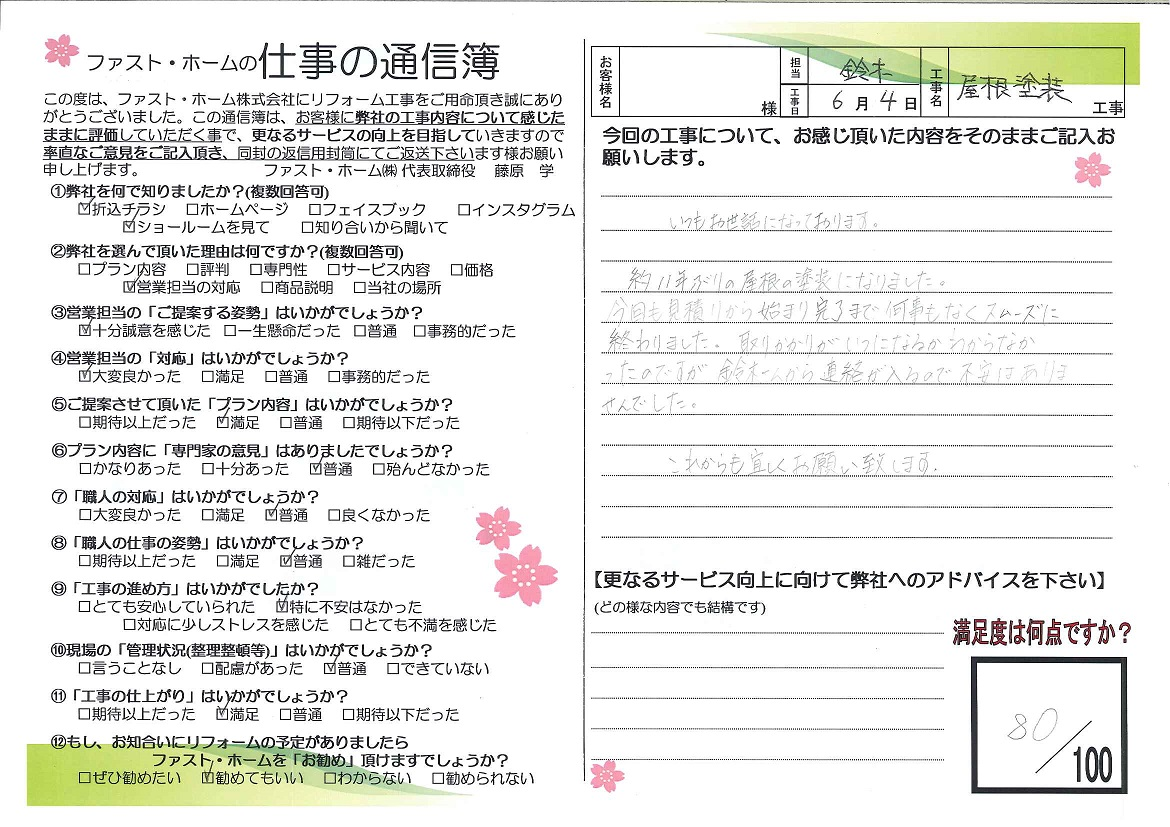 ファスト・ホームの仕事の通信簿
この度は、ファスト・ホーム株式会社にリフォーム工事をご用命頂き誠にあり
がとうございました。この通信簿は、お客様に弊社の工事内容について感じた
ままに評価していただく事で、更なるサービスの向上を目指していきますので
率直なご意見をご記入頂き、同封の返信用封筒にてご返送下さいます様お願い
申し上げます。 ファスト・ホーム㈱ 代表取締役 藤原 学
①弊社を何で知りましたか?(複数回答可)
☑折込チラシ □ホームページ □フェイスブック □インスタグラム
☑ショールームを見て □知り合いから聞いて
②弊社を選んで頂いた理由は何ですか?(複数回答可)
□プラン内容 □評判 □専門性 □サービス内容 □価格
☑営業担当の対応 □商品説明 □当社の場所
③営業担当の「ご提案する姿勢」はいかがでしょうか?
☑十分誠意を感じた □一生懸命だった □普通 □事務的だった
④営業担当の「対応」はいかがでしょうか?
☑大変良かった □満足 □普通 □事務的だった
⑤ご提案させて頂いた「プラン内容」はいかがでしょうか?
□期待以上だった ☑満足 □普通 □期待以下だった
⑥プラン内容に「専門家の意見」はありましたでしょうか?
□かなりあった □十分あった ☑普通 □殆んどなかった
⑦「職人の対応」はいかがでしょうか?
□大変良かった □満足 ☑普通 □良くなかった
⑧「職人の仕事の姿勢」はいかがでしょうか?
□期待以上だった □満足 ☑普通 □雑だった
⑨「工事の進め方」はいかがでしたか?
□とても安心していられた ☑特に不安はなかった
□対応に少しストレスを感じた □とても不満を感じた
⑩現場の「管理状況(整理整頓等)」はいかがでしょうか?
□言うことなし □配慮があった ☑普通 □できていない
⑪「工事の仕上がり」はいかがでしょうか?
□期待以上だった ☑満足 □普通 □期待以下だった
⑫もし、お知合いにリフォームの予定がありましたら
ファスト・ホームを「お勧め」頂けますでしょうか?
□ぜひ勧めたい ☑勧めてもいい □わからない □勧められない
お客様名 様 担当 鈴木 工事日 6月4日 工事名 屋根塗装 工事
今回の工事について、お感じ頂いた内容をそのままご記入お
願いします。
いつもお世話になっております。
約11年ぶりの屋根の塗装になりました。
今回も見積りから始まり完了まで何事もなくスムーズに
終わりました。取りかかりがいつになるかわからなか
ったのですが鈴木さんから連絡が入るので不安はありま
せんでした。
これからも宜しくお願い致します。
【更なるサービス向上に向けて弊社へのアドバイスを下さい】
(どの様な内容でも結構です)
満足度は何点ですか?
80/100